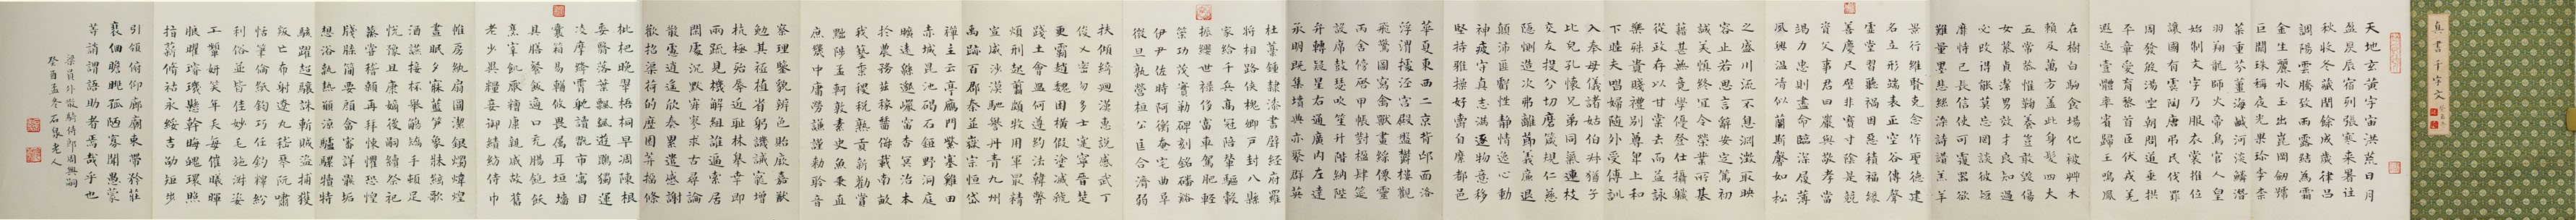 真書千字文
天地玄黃宇宙洪荒日月
盈昃辰宿列張寒來暑往
秋收冬藏閏餘成歲律呂
調陽雲騰致雨露結為霜
金生麗水玉出崑岡劒號
巨闕珠稱夜光果珍李柰
菜重芥薑海鹹河淡鱗潛
羽翔龍師火帝鳥官人皇
始制文字乃服衣裳推位
讓國有虞陶唐弔民伐罪
周發殷湯坐朝問道垂拱
平章愛育黎首臣伏戎羌
遐邇壹體率賓歸王鳴鳳
在樹白駒食場化被草木
賴及萬方蓋此身髮四大
五常恭惟鞠養豈敢毀傷
女慕貞潔男效才良知過
必改得能莫忘罔談彼短
靡恃己長信使可覆器欲
難量墨悲絲染詩讚羔羊
景行維賢克念作聖德建
名立形端表正空谷傳聲
虛堂習聽禍因惡積福緣
善慶尺璧非寶寸陰是競
資父事君曰嚴與敬孝當
竭力忠則盡命臨深履薄
夙興溫凊似蘭斯馨如松
之盛川流不息淵澄取映
容止若思言辭安定篤初
誠美慎終宜令榮業所基
藉甚無竟學優登仕攝職
從政存以甘棠去而益詠
樂殊貴賤禮別尊卑上和
下睦夫唱婦隨外受傅訓
入奉母儀諸姑伯叔猶子
比兒孔懷兄弟同氣連枝
交友投分切磨箴規仁慈
隱惻造次弗離節義廉退
顛沛匪虧性靜情逸心動
神疲守真志滿逐物意移
堅持雅操好爵自縻都邑
華夏東西二京背邙面洛
浮渭據涇宮殿盤鬱樓觀
飛驚圖寫禽獸畫綵僊靈
丙舍傍啟甲帳對楹肆筵
設席鼓瑟吹笙升階納陛
弁轉疑星右通廣內左達
承明既集墳典亦聚群英
杜稾鍾隸漆書壁經府羅
將相路俠槐卿戶封八縣
家給千兵高冠陪輦驅轂
振纓世祿侈富車駕肥輕
策功茂實勒碑刻銘磻溪
伊尹佐時阿衡奄宅曲阜
微旦孰營桓公匡合濟弱
扶傾綺迴漢惠說感武丁
俊乂密勿多士寔寧晉楚
更霸趙魏困橫假途滅虢
踐土會盟何遵約法韓弊
煩刑起翦頗牧用軍最精
宣威沙漠馳譽丹青九州
禹跡百郡秦并嶽宗恒岱
禪主云亭雁門紫塞雞田
赤城昆池碣石鉅野洞庭
曠遠緜邈巖岫杳冥治本
於農務茲稼穡俶載南畝
我藝黍稷稅熟貢新勸賞
黜陟孟軻敦素史魚秉直
庶幾中庸勞謙謹勑聆音
察理鑒貌辨色貽厥嘉猷
勉其祗植省躬譏誡寵增
抗極殆辱近恥林皋幸即
兩疏見機解組誰逼索居
閑處沉默寂寥求古尋論
散慮逍遙欣奏累遣慼謝
歡招渠荷的歷園莽抽條
枇杷晚翠梧桐早凋陳根
委翳落葉飄颻遊鵾獨運
凌摩絳霄耽讀翫市寓目
囊箱易輶攸畏屬耳垣牆
具膳餐飯適口充腸飽飫
烹宰飢厭糟糠親戚故舊
老少異糧妾御績紡侍巾
帷房紈扇圓潔銀燭煒煌
晝眠夕寐藍筍象牀絃歌
酒讌接杯舉觴矯手頓足
悅豫且康嫡後嗣續祭祀
蒸嘗稽顙再拜悚懼恐惶
牋牒簡要顧答審詳骸垢
想浴執熱願涼驢騾犢特
駭躍超驤誅斬賊盜捕獲
叛亡布射遼丸嵇琴阮嘯
恬筆倫紙鈞巧任釣釋紛
利俗並皆佳妙毛施淑姿
工顰妍笑年矢每催曦暉
朗曜璇璣懸斡晦魄環照
指薪脩祜永綏吉劭矩步
引領俯仰廊廟束帶矜莊
裵佪瞻眺孤陋寡聞愚蒙
等誚謂語助者焉哉乎也
梁員外散騎侍郎周興嗣
癸酉孟冬石老人